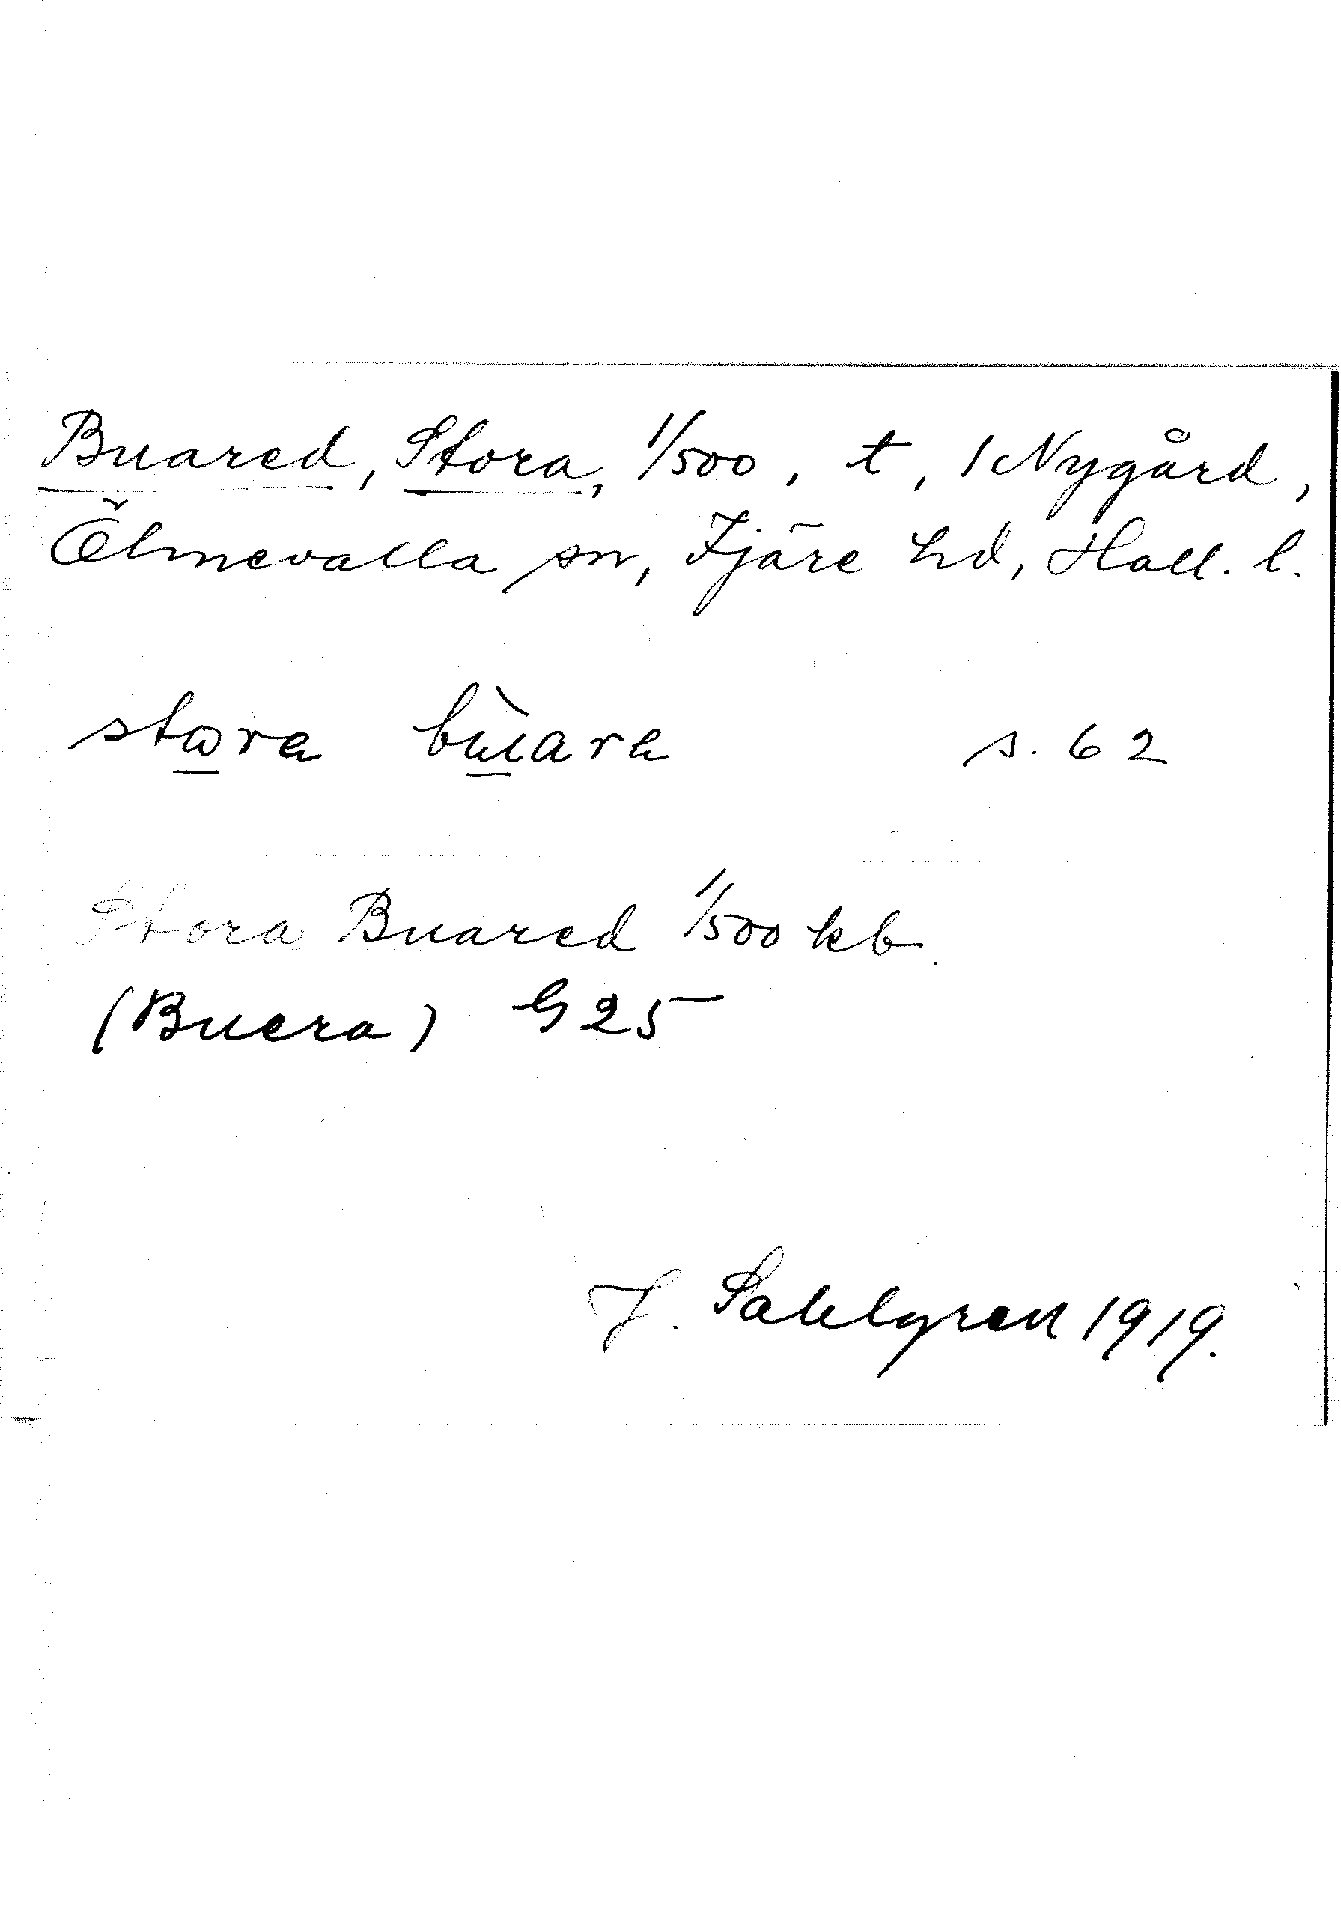 Buared, Stora, 1/500, t, 1 Nygård,
Ölmevalla sn, Fjäre hd, Hall. l.
stora bùara s. 62
Stora Buared 1/500 kb.
(Buera) G 25
J. Sahlgren 1919.